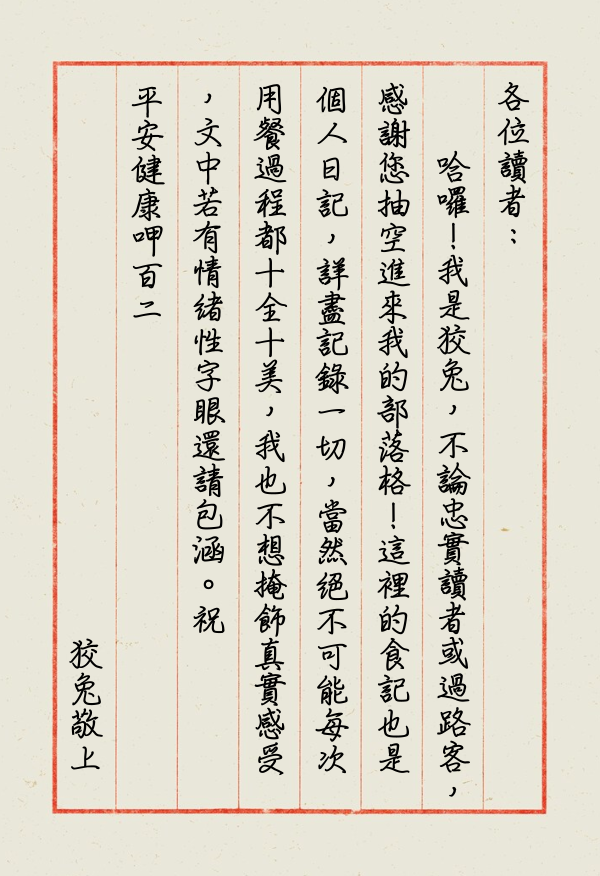 各位讀者：
哈囉！我是狡兔，不論忠實讀者或過路客，
感謝您抽空進來我的部落格！這裡的食記也是
個人日記，詳盡記錄一切，當然絕不可能每次
用餐過程都十全十美，我也不想掩飾真實感受
，文中若有情緒性字眼還請包涵。祝
平安健康呷百二
狡兔敬上